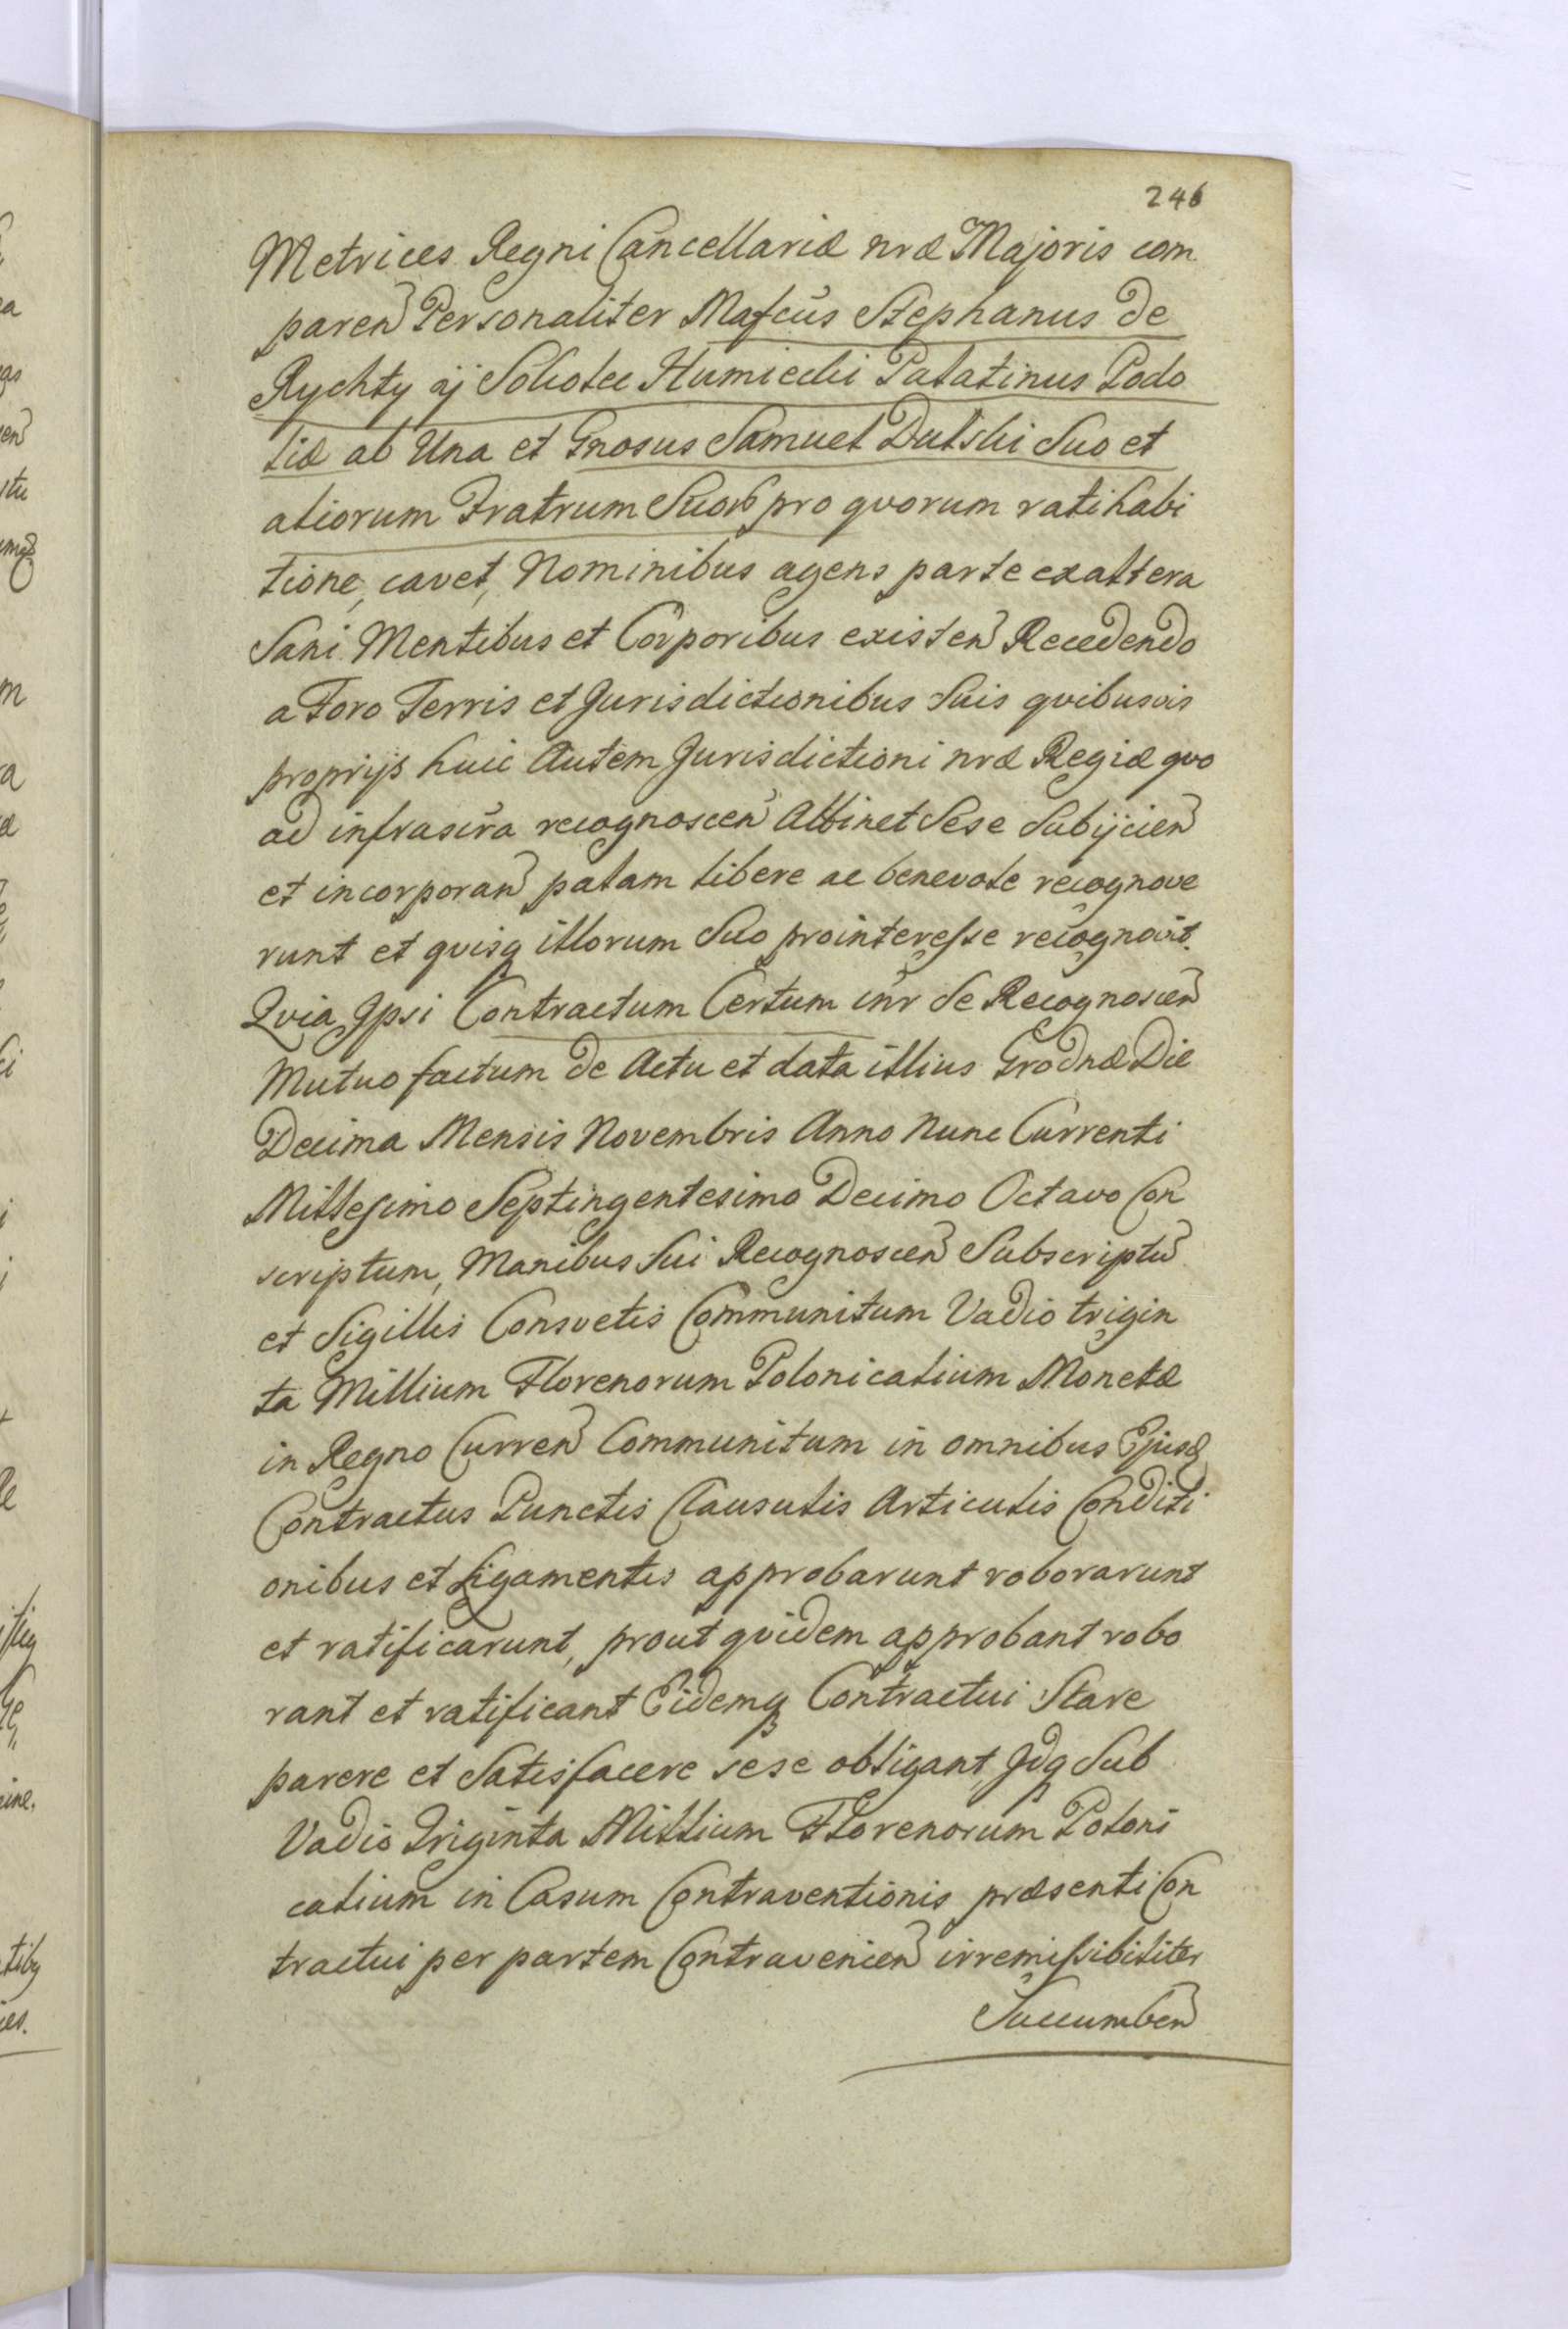 246
Metrices Regni Cancellariæ nræ Majoris com
paren Personaliter Mafcus Stephanus de
Rychty ij Humiecki Palatinus Podo
liæ ab Una et Gnosus Samuel Dulski Suo et
aliorum Fratrum Suor pro qvorum ratihabi
tione, cavet, Nominibus agens parte exaltera
Sani Mentibus et Corporibus existen Recedendo
a Foro Terris et Jurisdictionibus Suis qvibusvis
proprijs huic Autem Jurisdictioni nræ Regiæ qvo
ad infrascra recognoscen Attinet Sese Subijcien
et incorporan palam libere ac benevole recognove
runt et qvisq illorum Suo prointeresse recognovit.
Qvia Ipsi Contractum Certum inr Se Recognoscen
Mutuo factum de Actu et data illius Grodnæ Die
Decima Mensis Novembris Anno Nunc Currenti
Millesimo Septingentesimo Decimo Octavo Con
scriptum, Manibus Sui Recognoscen Subscriptu
et Sigillis Consvetis Communitum Vadio trigin
ta Millium Florenorum Polonicalium Monetæ
in Regno Curren Communitum in omnibus Ejusd
Contractus Punctis Clausulis Articulis Conditi
onibus et Ligamentis approbarunt roborarunt
et ratificarunt, prout qvidem approbant robo
rant et ratificant Eidemq Contractui Stare
parere et Satisfacere sese obligant, Idq Sub
Vadio Triginta Millium Florenorum Poloni
calium in Casum Contraventionis præsenti Con
tractui per partem Contravenien irremissibiliter
Succumben